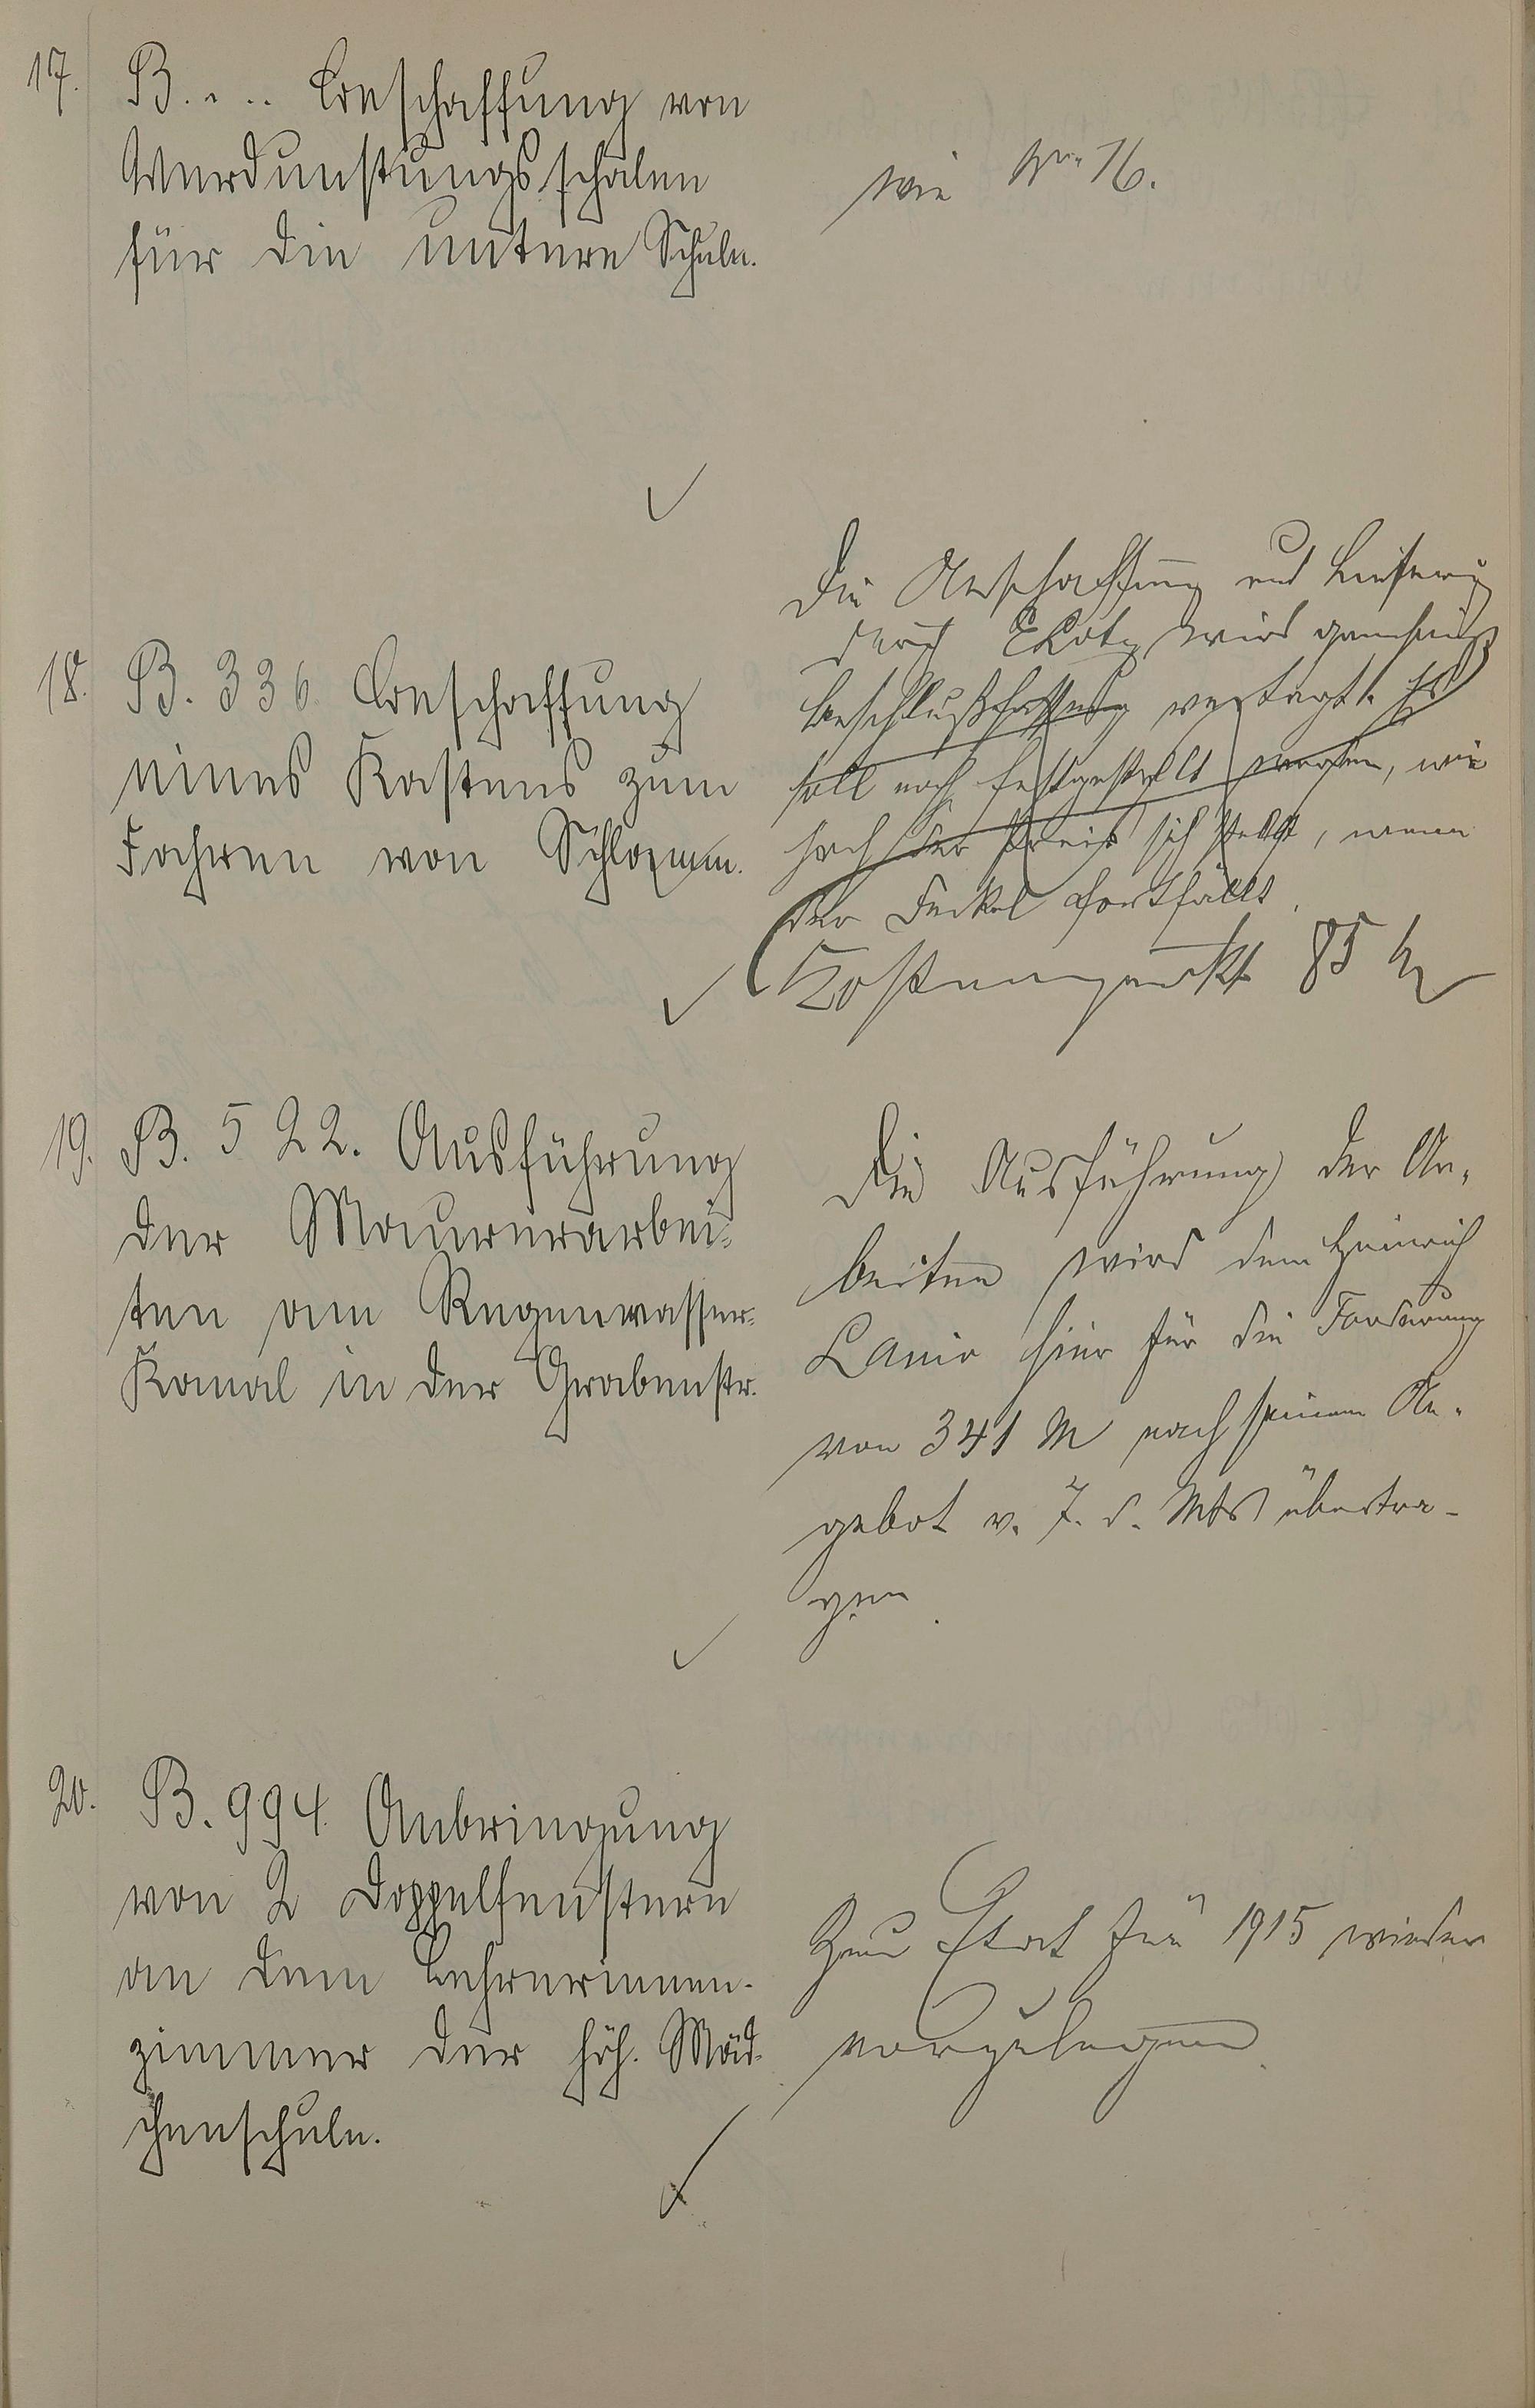 17. B. . . . Beschaffung von
Verdunstungsschalen
für die untere Schule.
wie Nr. 16.
18. B. 336. Beschaffung
eines Kastens zum
Fahren von Schlamm.
Die Anschaffung und Lieferung
durch wird genehmigt
Beschlußfassung vertagt. Es
soll noch festgestellt werden, wie
hoch der Preis sich stellt, wenn
der Deckel fortfällt.
Kostenpunkt 85 M
19. B. 522. Ausführung
der Maurerarbei-
ten am Regenwasser-
Kanal in der Grabenstr.
Die Ausführung der Ar-
beiten wird dem Heinrich
Lanio hier für die Forderung
von 341 M nach seinem An-
gebot v. 7. d. Mts übertra-
gen.
20. B. 994. Anbringung
von 2 Doppelfenstern
an dem Lehrerinnen-
zimmer der höh. Mäd-
chenschule.
Zum Etat für 1915 wieder
vorzulegen.